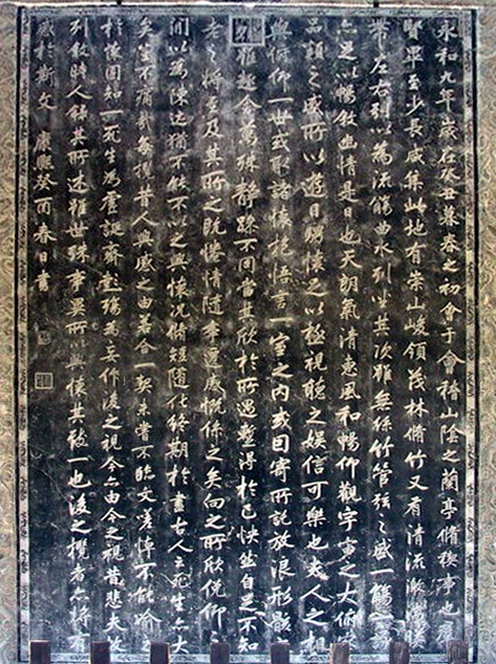 永和九年歲在癸丑暮春之初會于會稽山陰之蘭亭脩禊事也羣
賢畢至少長咸集此地有崇山峻領茂林脩竹又有清流激湍暎
帶左右引以為流觴曲水列坐其次雖無絲竹管弦之盛一觴一詠
亦足以暢敘幽情是日也天朗氣清惠風和暢仰觀宇宙之大俯察
品類之盛所以遊目騁懷足以極視聽之娛信可樂也夫人之相
與俯仰一世或取諸懷抱悟言一室之內或因寄所託放浪形骸
雖趣舍萬殊靜躁不同當其欣於所遇蹔得於己快然自足不知
老之將至及其所之既惓情隨事遷感慨係之矣向之所欣俛仰之
間以為陳迹猶不能不以之興懷況脩短隨化終期於盡古人云死生亦大
矣豈不痛哉每攬昔人興感之由若合一契未嘗不臨文嗟悼不能喻之
於懷固知一死生為虛誕齊彭殤為妄作後之視今亦由今之視昔悲夫故
列敘時人錄其所述雖世殊事異所以興懷其致一也後之攬者亦將有
感於斯文 康熙癸酉春日書